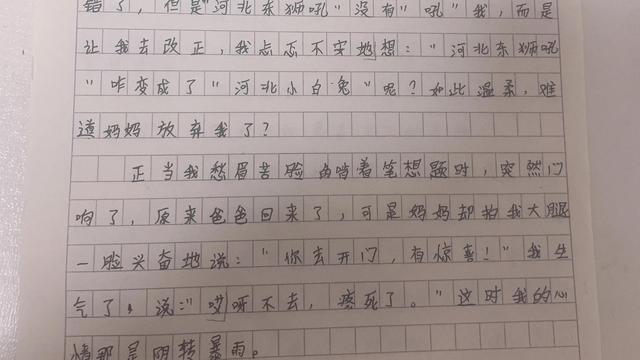 错了，但是"河北东狮吼"没有"吼"我，而是
让我去改正，我忐忑不安地想："河北东狮吼
"咋变成了"河北小白兔"呢？如此温柔，难
道妈妈放弃我了？
正当我愁眉苦脸的啃着笔想题时，突然门
响了，原来爸爸回来了，可是妈妈却拍我大腿
一脸兴奋地说："你去开门，有惊喜！"我生
气了，说："哎呀不去，疼死了。"这时我的心
情那是阴转暴雨。